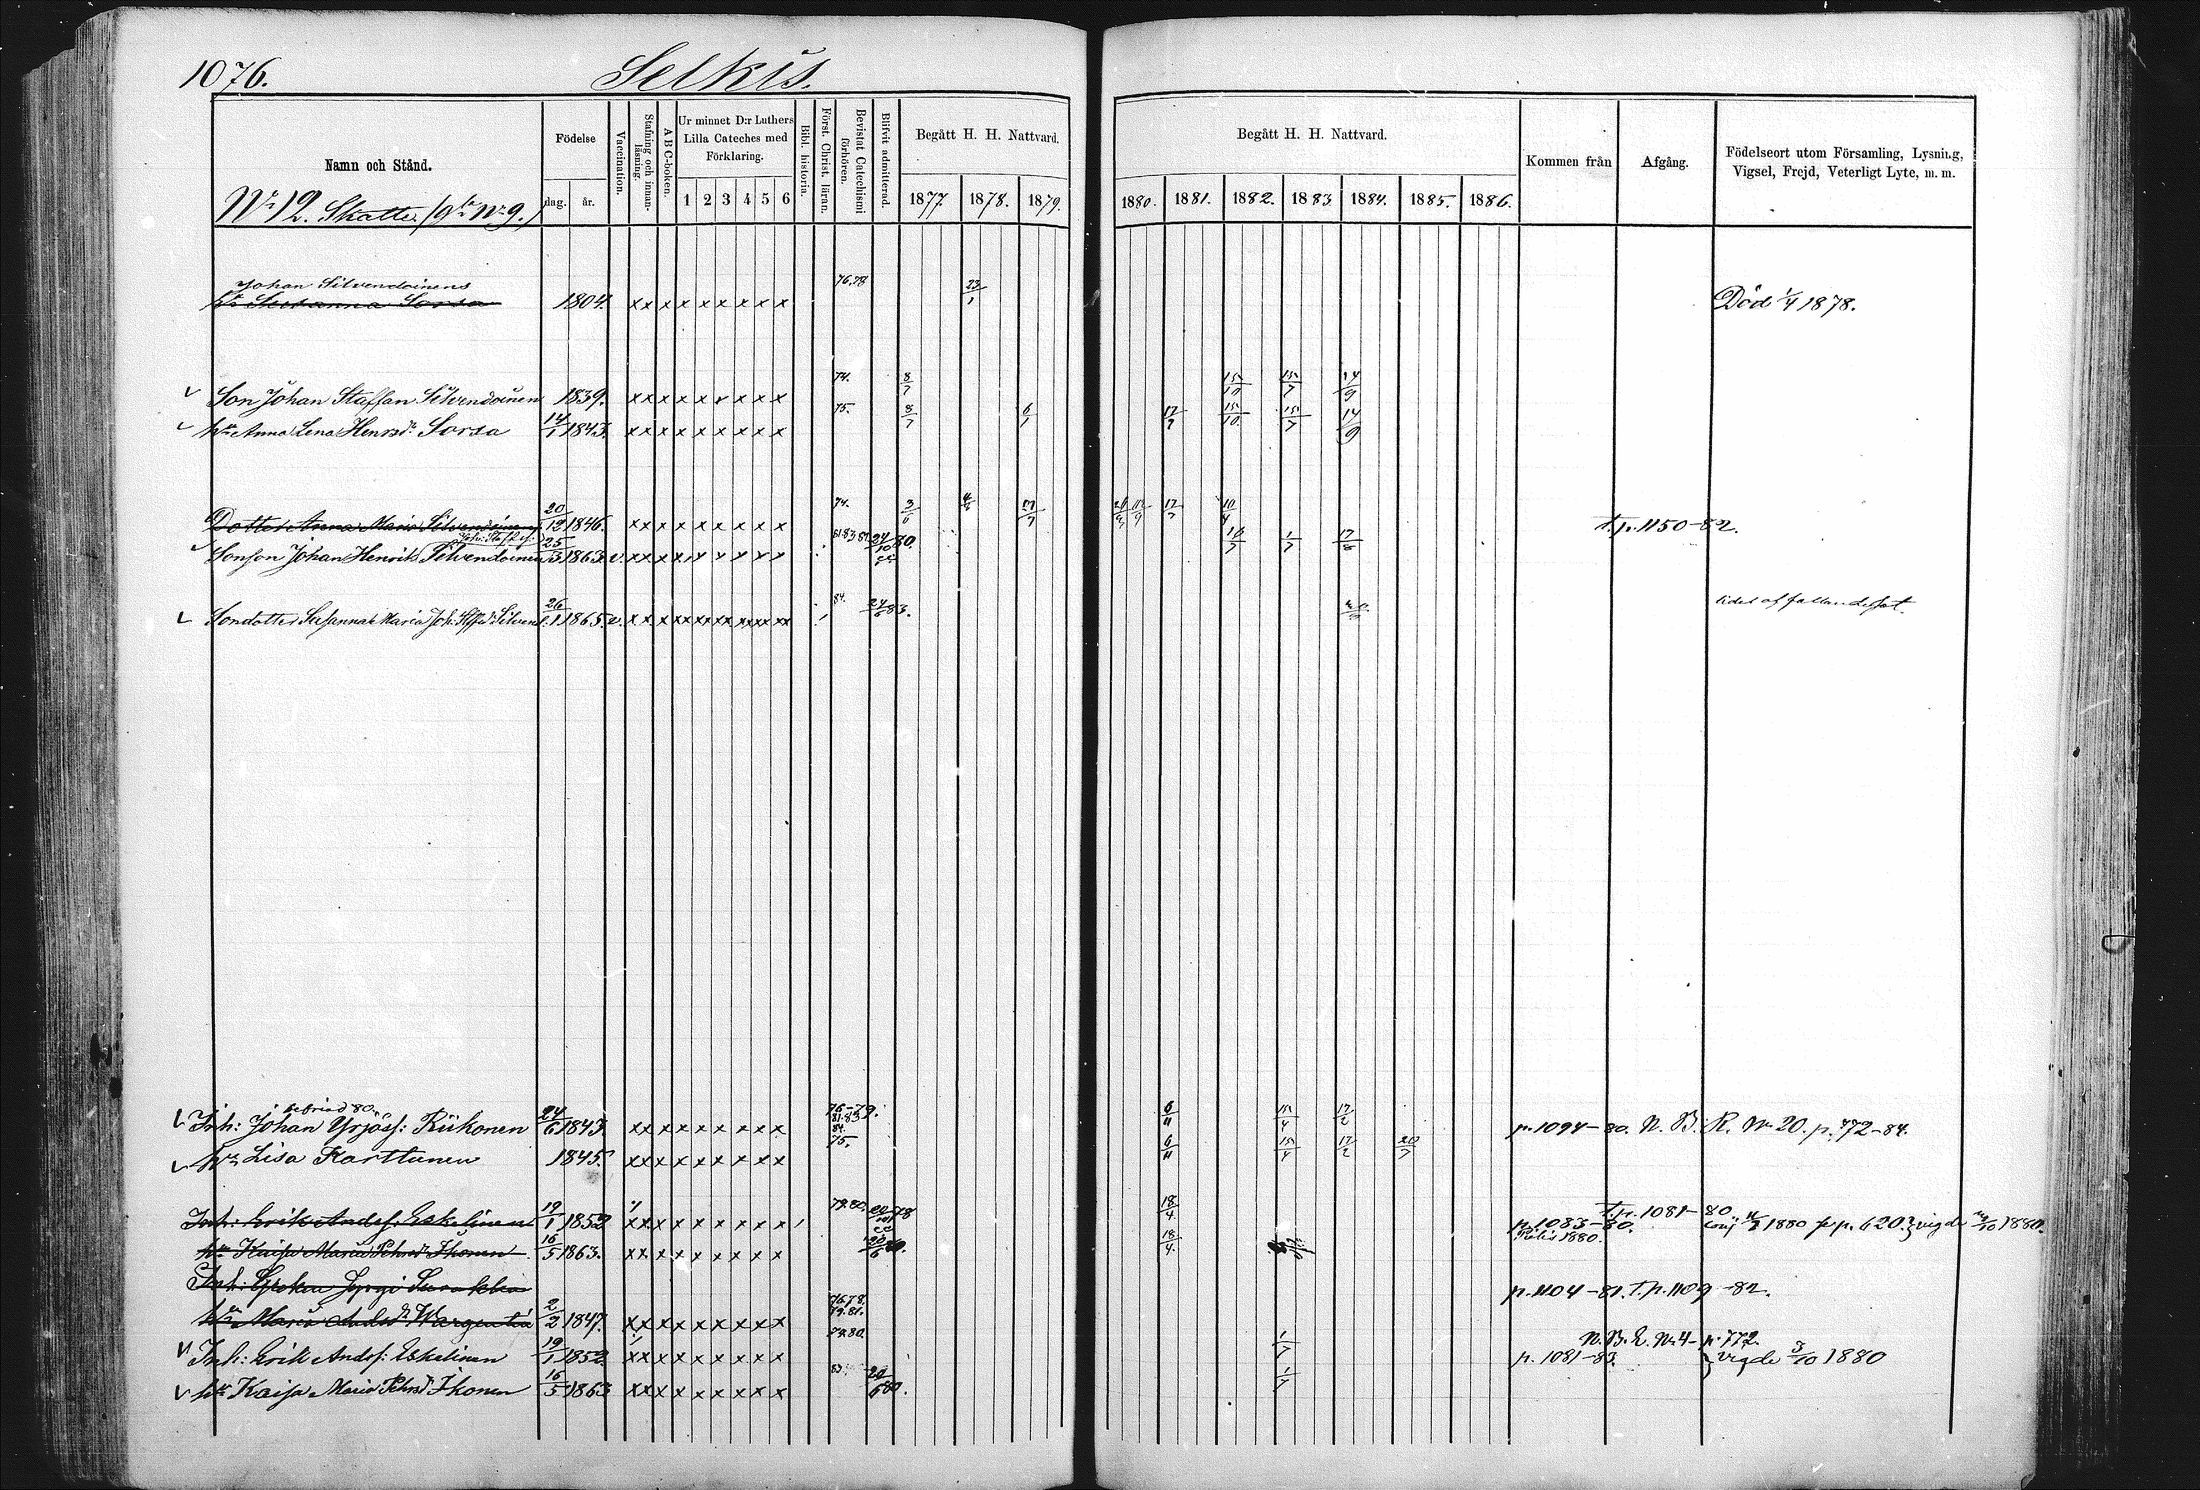 1076.
Selkis.
Namn och Stånd.
Födelse
dag.
år.
Vaccination.
Stafning och innanläsning.
ABC-boken.
Ur minnet D:r Luthers Lilla Cateches med Förklaring.
1 2 3 4 5 6
Bibl. historia.
Först. Christ. läran.
Bevistat Catechismi förhören.
Blifvit admitterad.
Begått H. H. Nattvard.
1877. 1878. 1879.
Begått H. H. Nattvard.
1880. 1881. 1882. 1883 1884. 1885. 1886.
Kommen från
Afgång.
Födelseort utom Församling, Lysning, Vigsel, Frejd, Veterligt Lyte, m. m.
Nr 12. Skatte.
Johan Silvendoinens
hu Susanna Sorsa 1804. x x x x x x x x x 76.78 23/1 Död 1/4 1878.
Son Johan Staffan Silvendoinen 1839. x x x x x x x x x 74. 8/7 15/10 15/7 14/9
hu Anna Lena Henrsdr Sorsa 14/1 1843. x x x x x x x x x 75. 8/7 6/1 17/7 15/10 15/7 14/9
Dotter Anna Maria Silvendoinen 20/12 1846. x x x x x x x x x 74. 3/6 17/7 10/4 T. p. 1150-82.
Sonson Johan Henrik Silvendoinen 25/3 1863 v. x x x x x x x x x 24/10 80. 16/7 1/7 17/8
Sondotter Susanna Maria 26/1 1865. v. x x x xx xx xx xx xx xx 84. 24/6 83. lidet af fallandesot
befriad 80.
Inh: Johan Yrjöss: Riikonen 24/6 1843 x x x x x x x x x 76-79. 81.83 84. 6/11 15/4 17/2 p. 1094-80. N. B. R. No 20. p. 772-84.
hu Lisa Karttunen 1845. x x x x x x x x x 75. 6/11 15/4 17/2 20/7
Inh: Erik Andess. Eskelinen 19/1 1852 x x x x x x x x x 79.80. 78 18/4 p. 1083-80. T. p. 1081-80. 1880 p. 620 vigde 3/10 1880.
hu Kaisa Maria Pehrsdr Ikonen 16/5 1863. x x x x x x x x x 20/6 80. 18/4
Inh: p. 1104-81. T. p. 1109-82.
hu Maria Andsdr Wargentin 2/2 1847. x x x x x x x x x 76.78. 79.81.
Inh: Erik Andess: Eskelinen 19/1 1852. x x x x x x x x x 79.80. 1/7 p. 1081-83. N. B. E. No 4- p. 772. vigde 3/10 1880
hu Kaisa Maria Pehrsdr Ikonen 16/5 1863 x x x x x x x x x 83. 20/6 80. 1/7